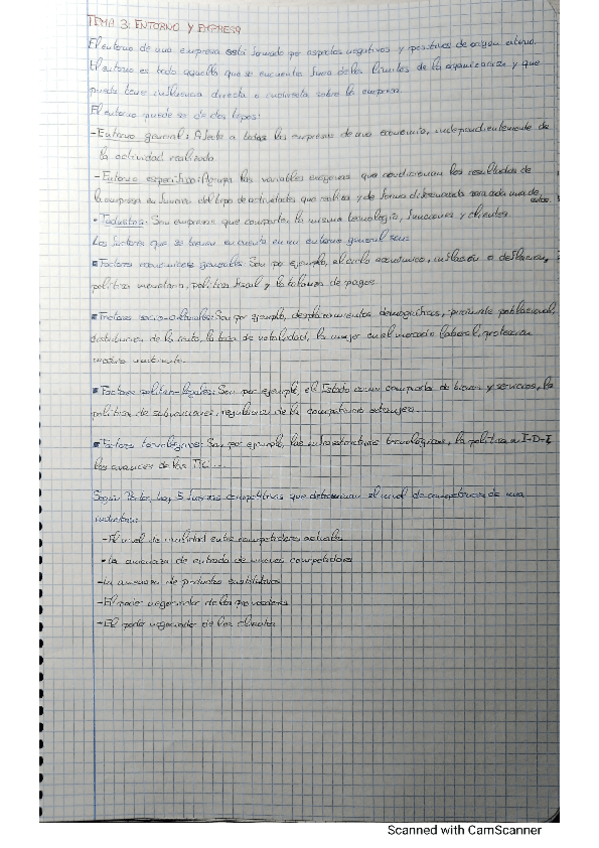 TEMA 3: ENTORNO Y EMPRESA
El entorno de una empresa está formado por aspectos negativos y positivos de origen externo.
El entorno es todo aquello que se encuentra fuera de los límites de la organización y que
puede tener influencia directa o indirecta sobre la empresa.
El entorno puede ser de dos tipos:
-Entorno general: Afecta a todas las empresas de una economía, independientemente de
la actividad realizada
-Entorno específico: Agrupa las variables exógenas que condicionan los resultados de
la empresa en función del tipo de actividades que realiza y de forma diferenciada para cada una de
- Industria: Son empresas que comparten la misma tecnología, funciones y clientes
Los factores que se toman en cuenta en un entorno general son:
Factores económicos generales: Son por ejemplo, el ciclo económico, inflación o deflación,
política monetaria, política fiscal y la balanza de pagos.
Factores socio-culturales: Son por ejemplo, desplazamientos demográficos, poblacional,
distribución de la renta, la tasa de natalidad, la mujer en el mercado laboral, protección
medio ambiente.
Factores político-legales: Son por ejemplo, el Estado como de bienes y servicios, la
política de subvenciones, regulación de la competencia
Factores tecnológicos: Son por ejemplo, las infraestructuras tecnológicas, la política en I+D+I,
los avances de las TIC...
Según Porter, hay 5 fuerzas competitivas que determinan el nivel de competencia de una
industria:
-El nivel de rivalidad entre competidores actuales
-La amenaza de entrada de nuevos competidores
-La amenaza de productos sustitutivos
-El poder negociador de los proveedores
-El poder negociador de los clientes
Scanned with CamScanner